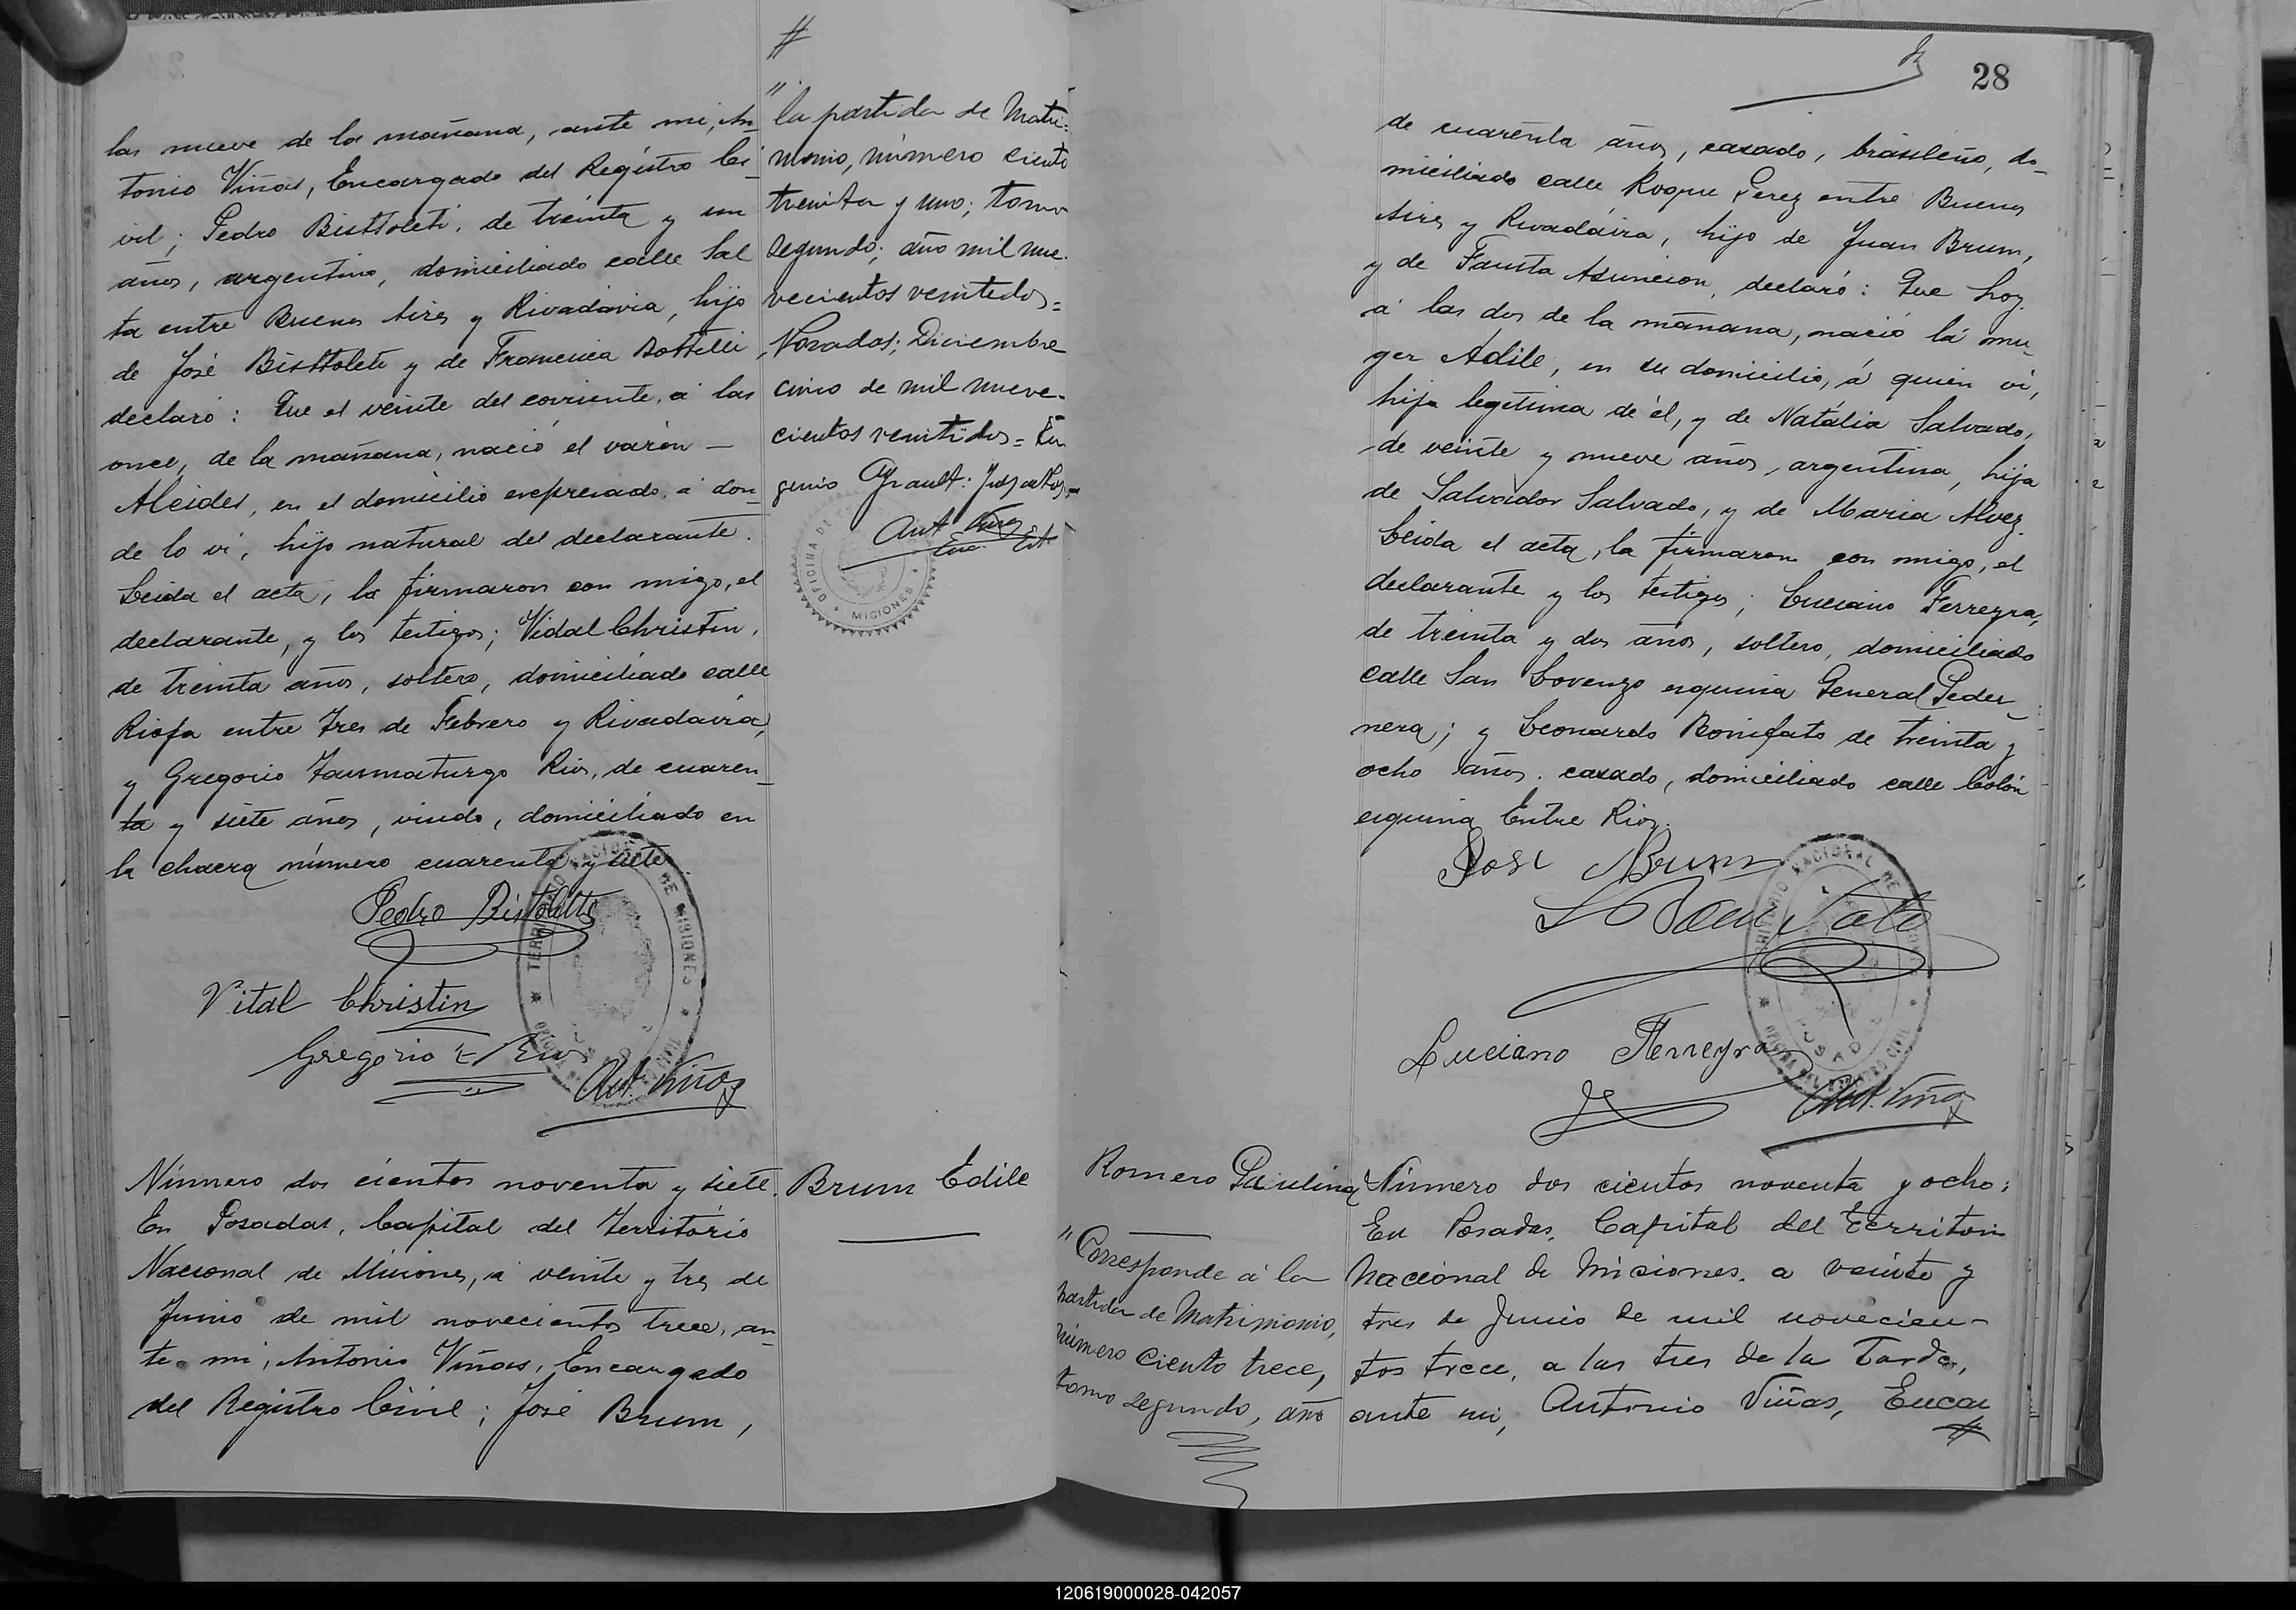 las nueve de la mañana, ante mi, An-
tonio Viñas, Encargado del Registro Ci-
vil; Pedro Bisttoleti, de treinta y un
años, argentino, domiciliado calle Sal
ta entre Buenos Aires y Rivadávia, hijo
de José Bisttoleti y de Francisca Bottelli
declaró: Que el veinte del corriente, á las
once, de la mañana, nació el varón —
Alcides, en el domicilio expresado, á don-
de lo vi, hijo natural del declarante.
Leida el acta, la firmaron con migo, el
declarante, y los testigos; Vidal Christin,
de treinta años, soltero, domiciliado calle
Rioja entre Tres de Febrero y Rivadavia,
y Gregorio Taumaturgo Rios, de cuaren-
ta y siete años, viudo, domiciliado en
la chacra número cuarenta y siete.
Pedro Bistoletti
Vital Christin
Gregorio T Rios
Ant. Viñas
TERRITORIO NACIONAL DE MISIONES
#
"la partida de Matri=
monio, número ciento
treinta y uno; tomo
segundo; año mil nue-
vecientos veintidos=
Posadas; Diciembre
cinco de mil nueve-
cientos veintidos= Eu
genio
OFICINA DE
MISIONES
Número dos cientos noventa y siete.
En Posadas, Capital del Território
Nacional de Misiones, á veinte y tres de
Junio de mil novecientos trece, an
te mi, Antonio Viñas, Encargado
del Registro Civil; José Brum,
Brum Edile
28
de cuarenta años, casado, brasileño, do-
miciliado calle Roque Perez entre Buenos
Aires y Rivadáira, hijo de Juan Brum,
y de Fausta Asuncion, declaró: Que hoy
á las dos de la mañana, nació la mu-
ger Adile, en su domicilio, á quien vi,
hija legitima de él, y de Natália Salvado,
de veinte y nueve años, argentina, hija
de Salvador Salvado, y de Maria Alvez.
Leida el acta, la firmaron con migo, el
declarante y los testigos; Luciano Ferreyra,
de treinta y dos años, soltero, domiciliado
calle San Lorenzo esquina General Peder-
nera; y Leonardo Bonifato de treinta y
ocho años, casado, domiciliado calle Colón
esquina Entre Rios.
José Brum
Luciano Ferreyra
Ant. Viñas
TERRITORIO NACIONAL DE MISIONES
OFICINA DEL REGISTRO CIVIL
POSADAS
Romero Paulina
"Corresponde á la
partida de Matrimonio,
número ciento trece,
tomo segundo, año
Número dos cientos noventa y ocho:
En Posadas, Capital del Territorio
Nacional de Misiones, a veinte y
tres de Junio de mil novecien-
tos trece, a las tres de la Tarde,
ante mi, Antonio Viñas, Encar
#
120619000028-042057